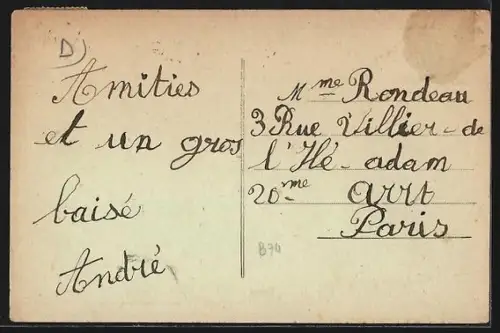 D
Amities
et un gros
baisé
André
Mme Rondeau
3 Rue Villier-de
l'Hé-adam
20-me arrt
Paris
B74